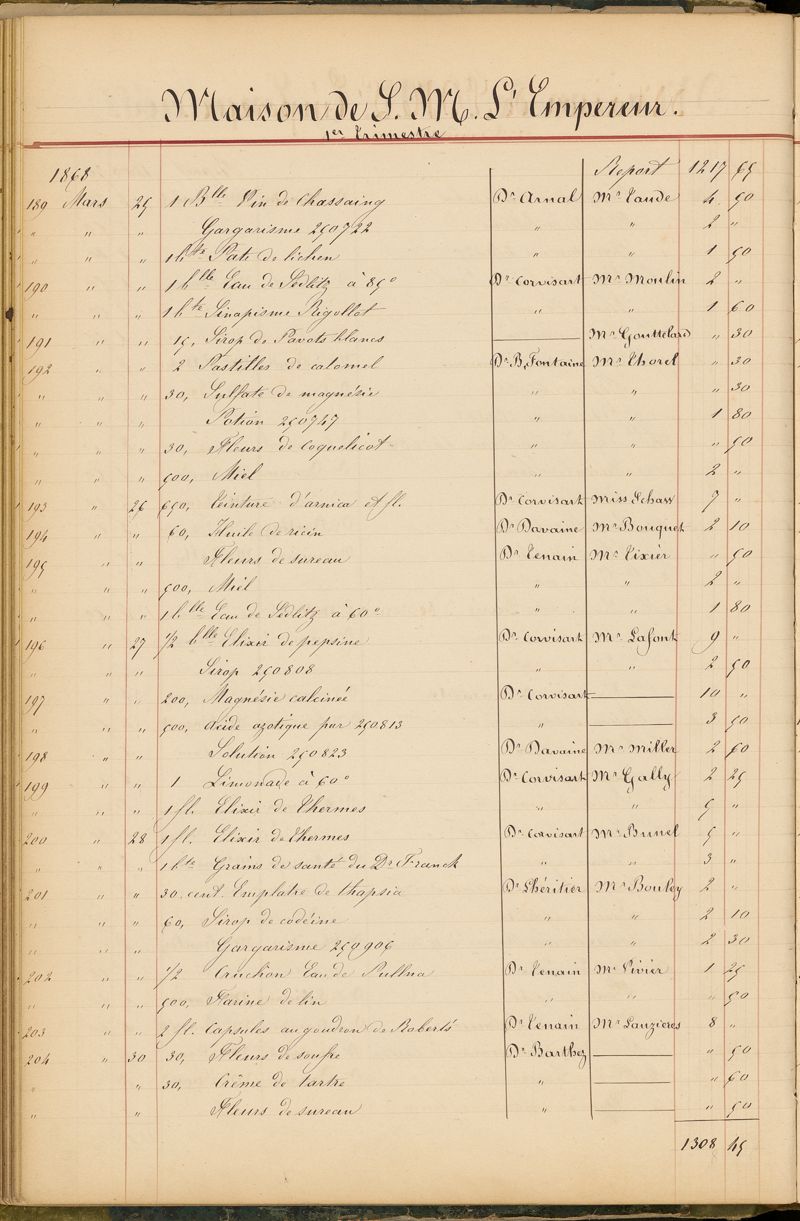 Maison de S. M. L'Empereur.
1er Trimestre
1868 Report 1217 65
189 Mars 25 1 Blle Vin de Chassaing Dr Arnal Mr Vaude 4 50
" " " Gargarisme 250722 " " 2 "
" " " 1 bte Pate de lichen " " 1 50
190 " " 1 blle Eau de Sedlitz à 85° Dr Corvisart Mr Moulin 2 "
" " " 1 bte Sinapisme Rigollot " " 1 60
191 " " 15, Sirop de Pavots blancs Mr Gouttelard " 30
192 " " 2 Pastilles de calomel Dr B, Fontaine Mr Thorel " 30
" " " 30, Sulfate de magnésie " " " 30
" " " Potion 250747 " " 1 80
" " " 30, Fleurs de coquelicot " " " 50
" " " 500, Miel " " 2 "
193 " 26 650, Teinture d'arnica et fl. Dr Corvisart Miss Schaw 7 "
194 " " 60, Huile de ricin Dr Davaine Mr Bouquet 2 10
195 " " Fleurs de sureau Dr Tenain Mr Tixier " 50
" " " 500, Miel " " 2 "
" " " 1 blle Eau de Sedlitz à 60° " " 1 80
196 " 27 1/2 blle Elixir de pepsine Dr Corvisart Mr Lafont 9 "
" " " Sirop 250808 " " 2 50
197 " " 200, Magnésie calcinée Dr Corvisart 10 "
" " " 500, acide azotique pur 250813 " 3 50
198 " " Solution 250823 Dr Davaine Mr Miller 2 60
199 " " 1 Limonade à 60° Dr Corvisart Mr Gally 2 25
" " " 1 fl. Elixir de Thermes " " 5 "
200 " 28 1 fl. Elixir de Thermes Dr Corvisart Mr Brunel 5 "
" " " 1 bte Grains de santé du Dr Franck " " 3 "
201 " " 30 cent. Emplatre de thapsia Dr Lhéritier Mr Bouley 2 "
" " " 60, Sirop de codéine " " 2 10
" " " Gargarisme 250906 " " 2 30
202 " " 1/2 Cruchon Eau de Pullna Dr Tenain Mr Vivier 1 25
" " " 500, Farine de lin " " " 50
203 " " 2 fl. Capsules au goudron de Roberts Dr Tenain Mr Lauzières 8 "
204 " 30 30, Fleurs de soufre Dr Barthez " 50
" " 30, Crême de tartre " " 60
" " Fleurs de sureau " " 50
1308 45